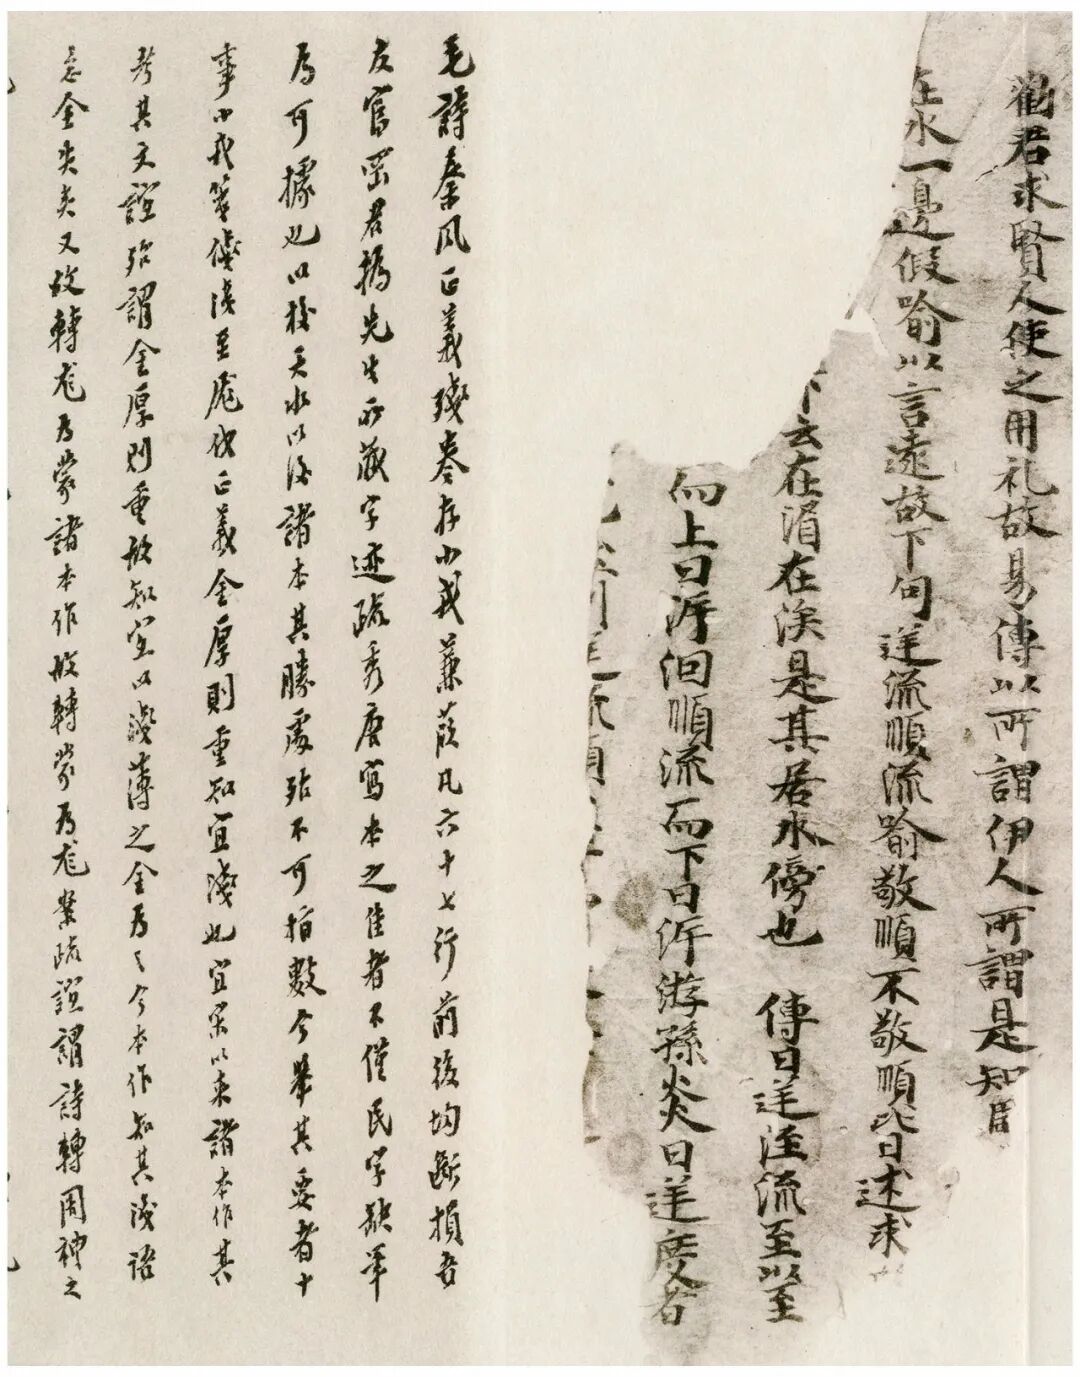 勸君求賢人使之用礼故易傳以所謂伊人所謂是知周
在水一邊假喻以言遠故下句逆流順流喻敬順不敬順皆述求
下云在湄在涘是其居水傍也　傳曰逆流至以至
而上曰泝洄順流而下曰泝游孫炎曰逆度者
逆流順
毛詩秦風正義殘卷存小戎蒹葭凡六十七行前後均斷損吾
友富岡君撝先生所藏字迹疏秀唐寫本之佳者不僅民字缺筆
為可據也以校天水以後諸本其勝處殆不可指數今舉其要者十
事小戎箋俴淺至尨伐正義金厚則重知宜淺也宜宋以来諸本作其
考其文誼殆謂金厚則重故知宜以淺薄之金為之今本作知其淺語
意全失矣又故轉尨為蒙諸本作故轉蒙為尨案疏誼謂詩轉周禮之